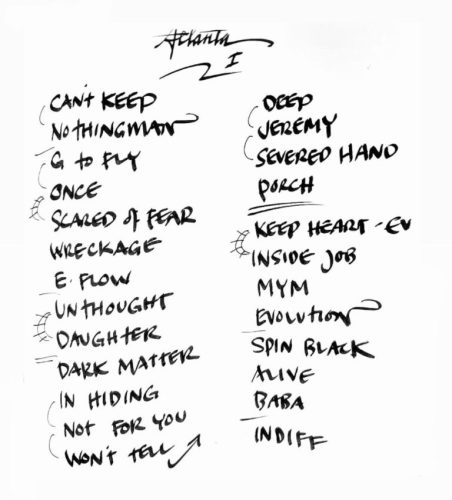 Atlanta
I
CAN'T KEEP
NOTHINGMAN
G TO FLY
ONCE
SCARED OF FEAR
WRECKAGE
E. FLOW
UNTHOUGHT
DAUGHTER
DARK MATTER
IN HIDING
NOT FOR YOU
WON'T TELL
DEEP
JEREMY
SEVERED HAND
PORCH
KEEP HEART - EV
INSIDE JOB
MYM
EVOLUTION
SPIN BLACK
ALIVE
BABA
INDIFF